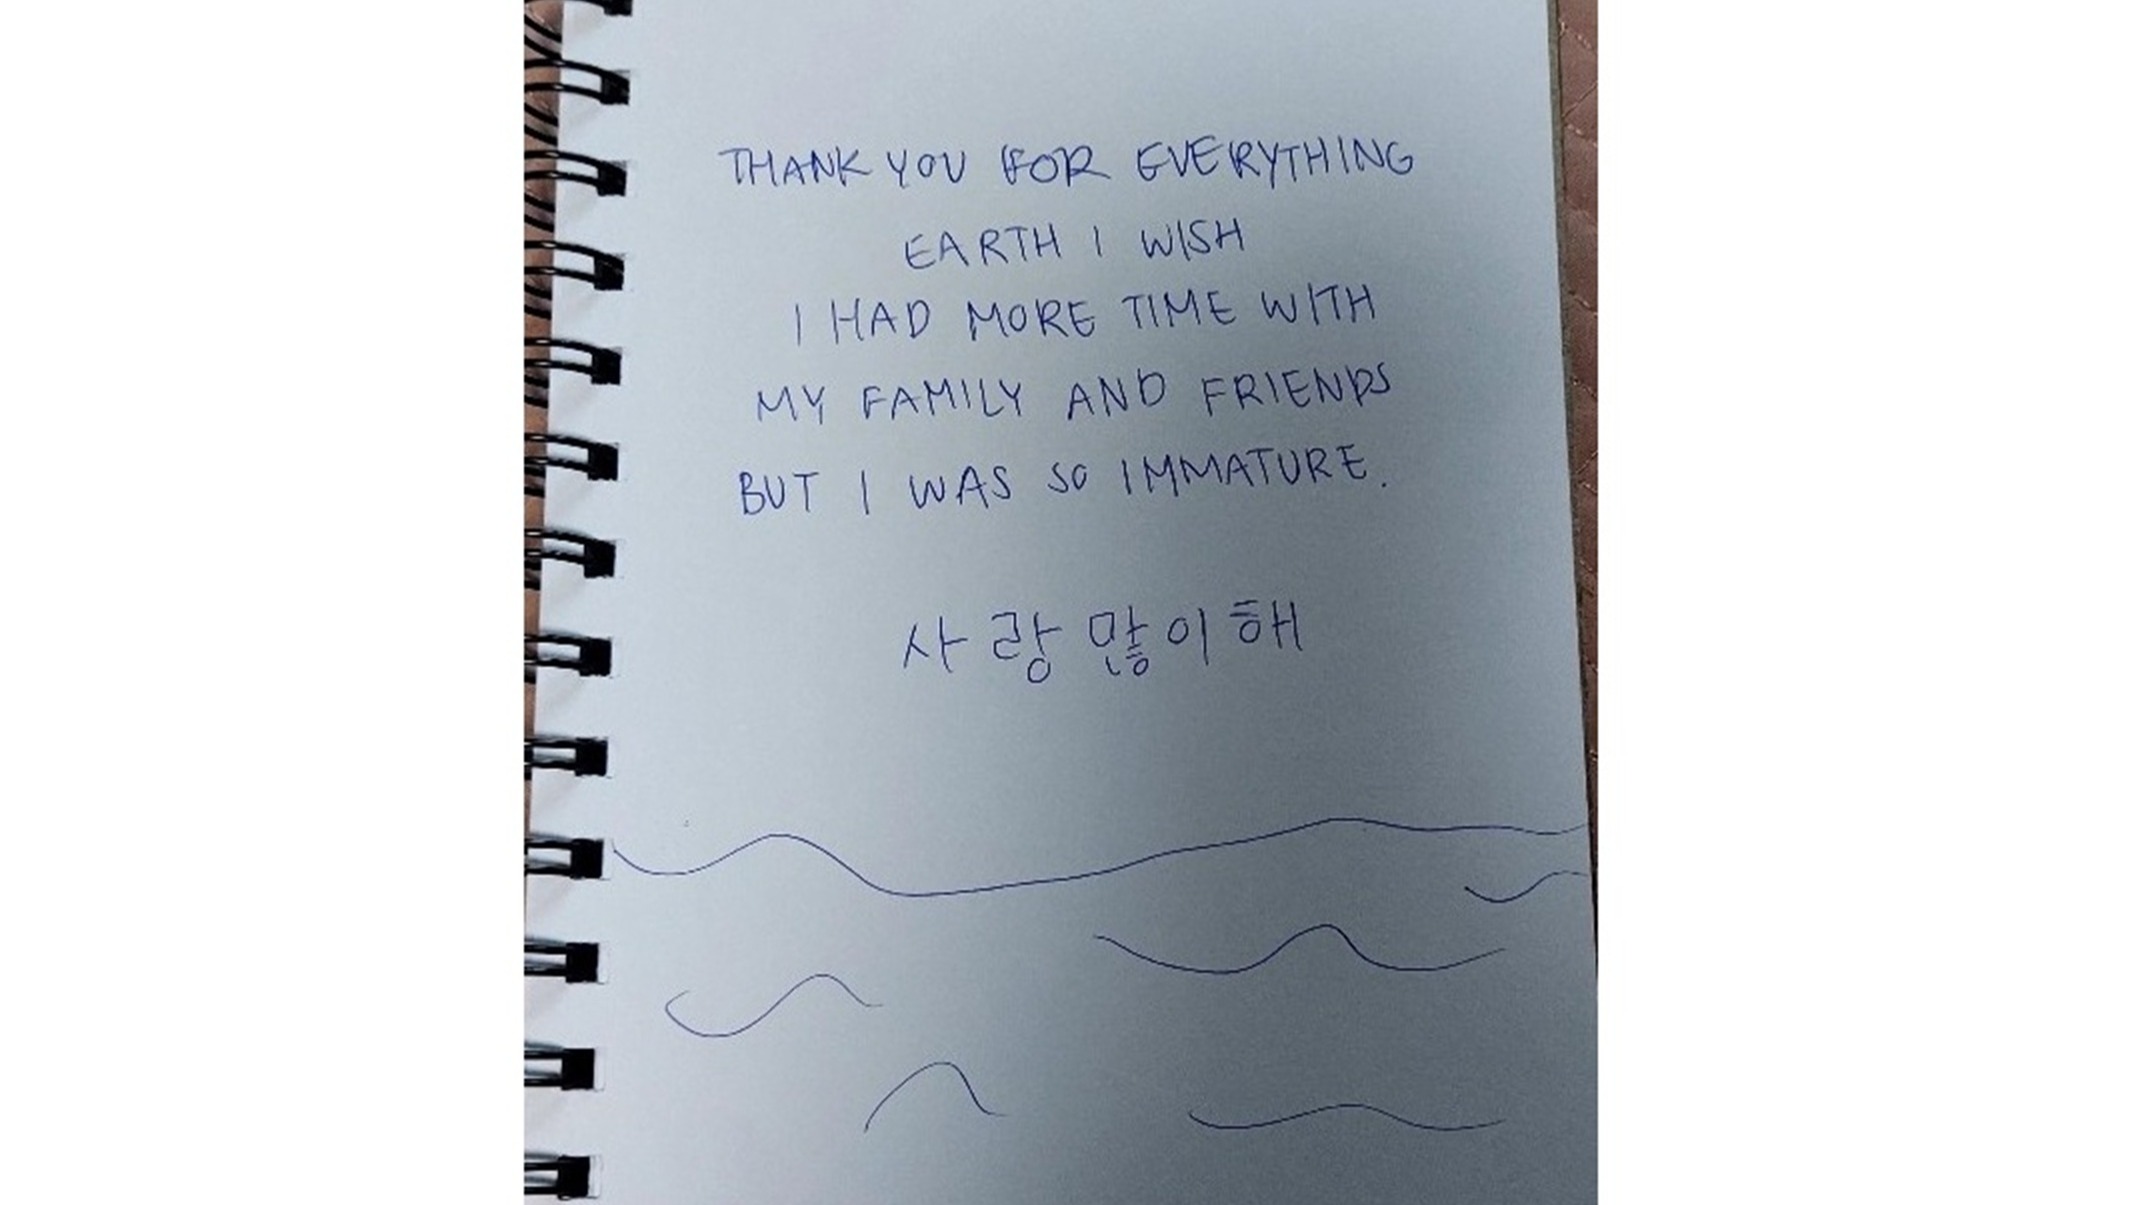 THANK YOU FOR EVERYTHING
EARTH I WISH
I HAD MORE TIME WITH
MY FAMILY AND FRIENDS
BUT I WAS SO IMMATURE.
사랑많이해